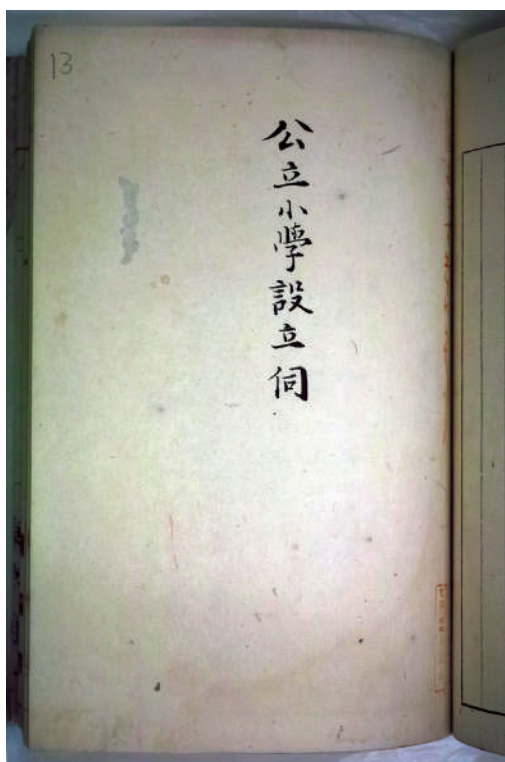 13
公立小學設立伺